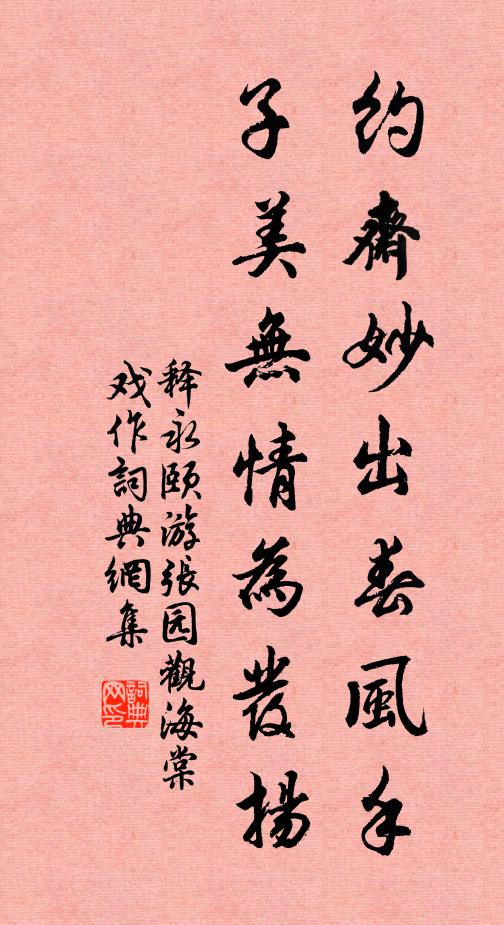 約齋妙出春風手
子美無情為發揚
释永颐游張园觀海棠
戏作詞典網集
詞典网印